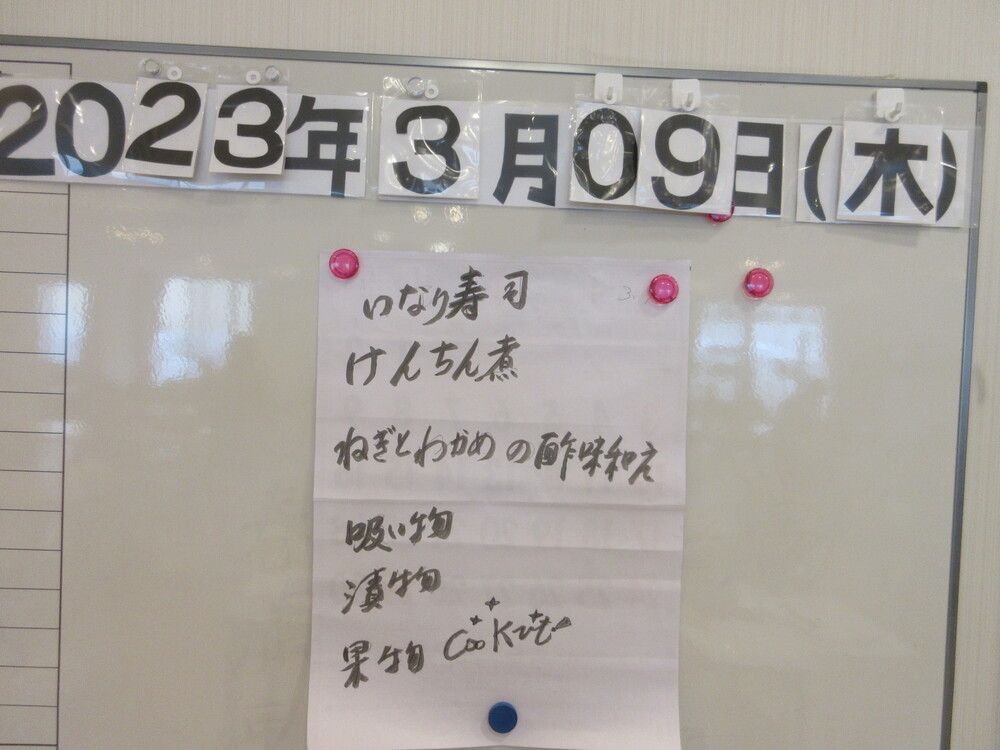 2023年3月09日(木)
いなり寿司
けんちん煮
ねぎとわかめの酢味和え
吸い物
漬物
果物 Cook